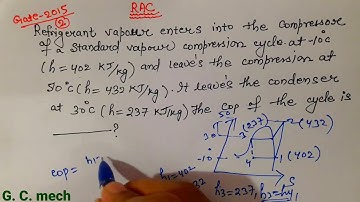 Gate-2015
RAC
(2)
Refrigerant vapour enters into the compressor
of a standard vapour compression cycle at -10°C
(h = 402 KJ/kg) and leaves the compressor at
50°C (h = 432 KJ/kg). It leaves the condenser
at 30°C (h = 237 KJ/kg) The cop of the cycle is
?
50
2 (432)
30
3 (237)
-10°
4
1 (402)
S
cop = h1-
h1 = 402
32
h3 = 237, h3 = h4
G. C. mech